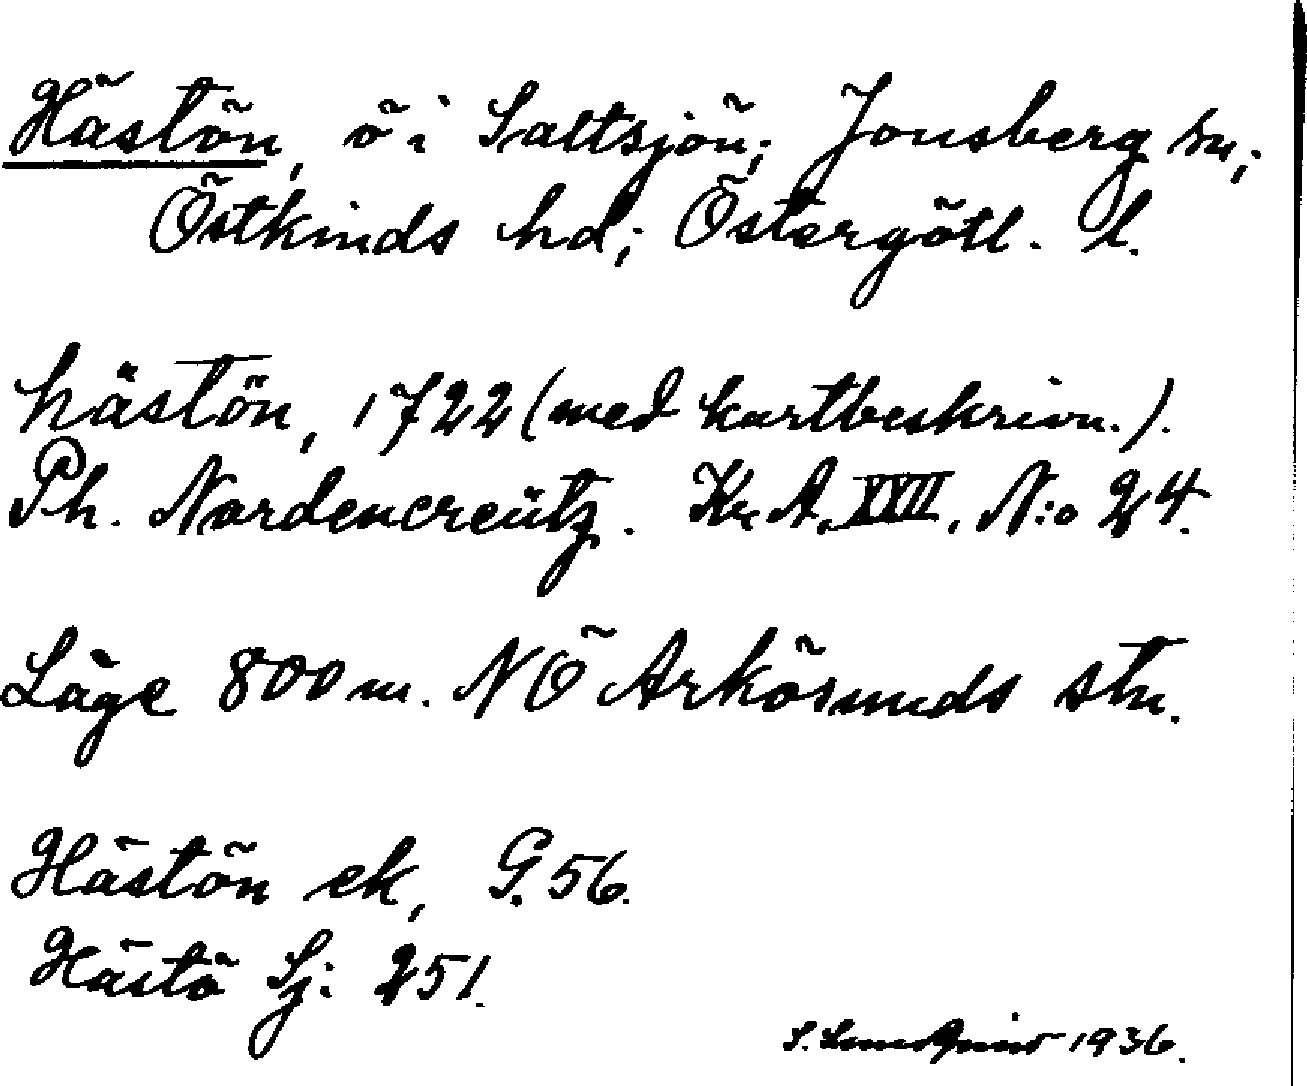 Hästön, ö i Saltsjön; Jonsberg sn;
Östkinds hd; Östergötl. l.
hästön, 1722 (med kartbeskrivn.).
Ph. Nordencreütz. Kr. A. XXII. N:o 24.
Läge 800 m. NÖ Arkösunds stn.
Hästön ek, G. 56.
Hästö Sj: 251.
S. Lundqvist 1936.